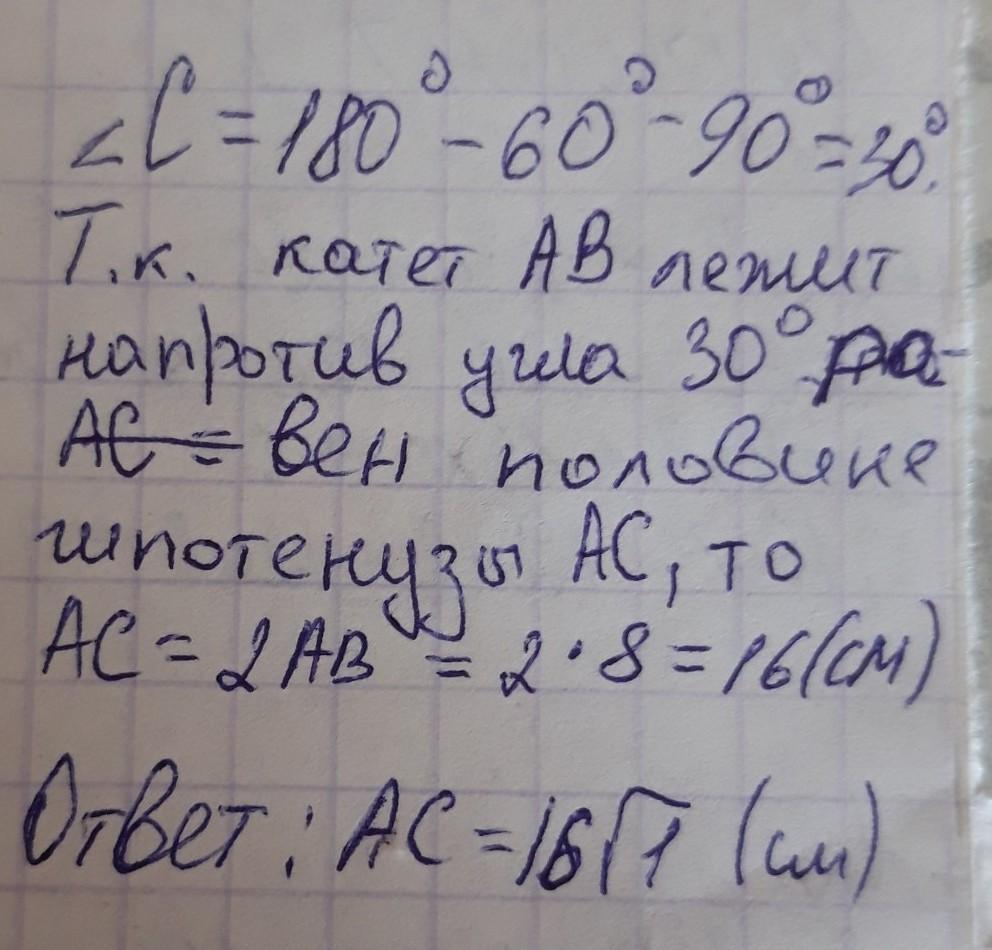 ∠C = 180° - 60° - 90° = 30°.
Т.к. катет AB лежит
напротив угла 30° ра-
AC = вен половине
гипотенузы AC, то
AC = 2AB = 2 · 8 = 16(см)
Ответ: AC = 16√1 (см)